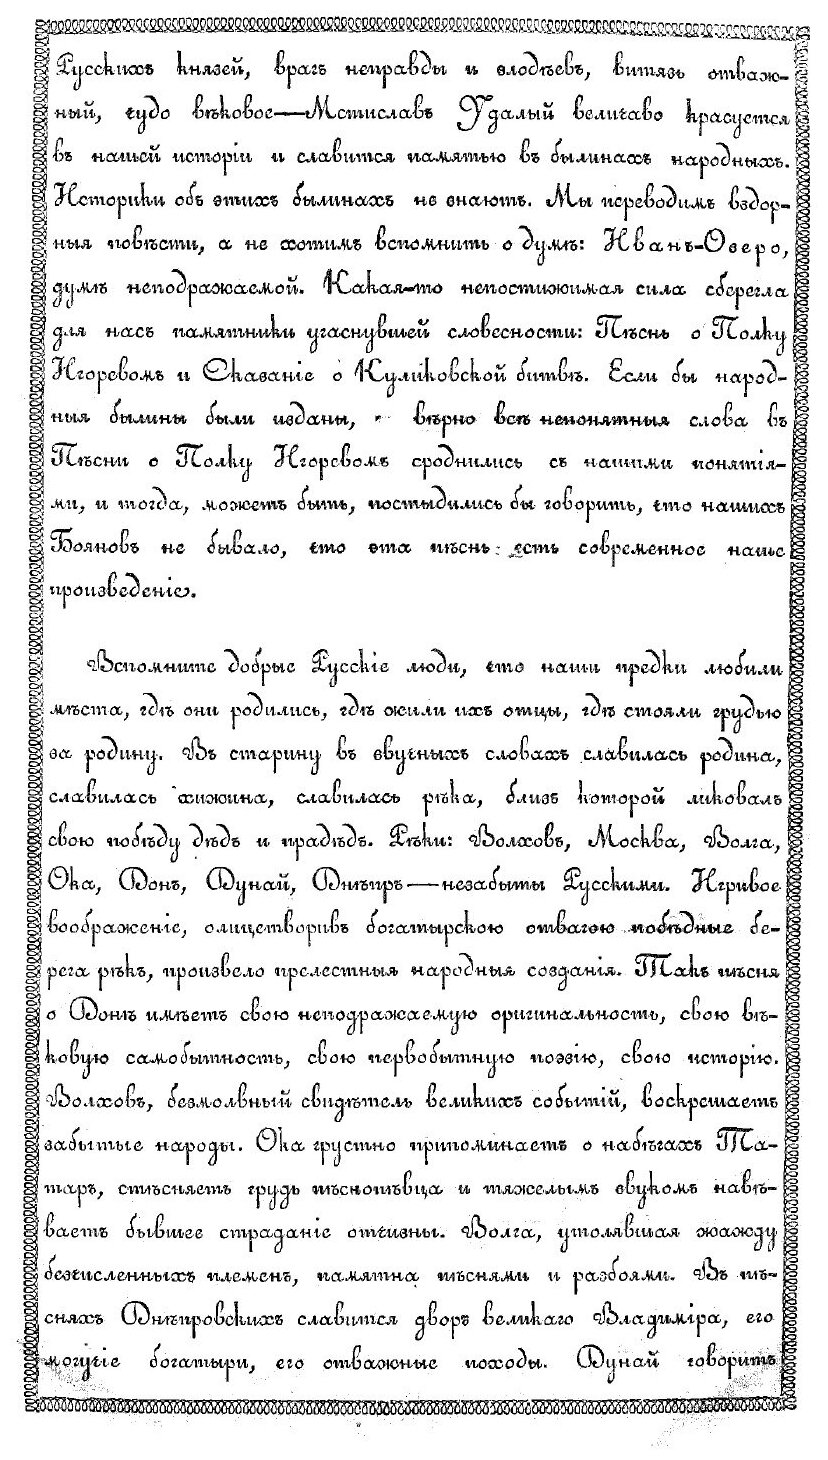 Русскихъ князей, врагъ неправды и злодѣевъ, витязь отваж-
ный, чудо вѣковое—Мстиславъ Удалый величаво красуется
въ нашей исторіи и славится памятью въ былинахъ народныхъ.
Историки объ этихъ былинахъ не знаютъ. Мы переводимъ вздор-
ныя повѣсти, а не хотимъ вспомнить о думѣ: Иванъ-Озеро,
думѣ неподражаемой. Какая-то непостижимая сила сберегла
для насъ памятники угаснувшей словесности: Пѣснь о Полку
Игоревомъ и Сказаніе о Куликовской битвѣ. Если бы народ-
ныя былины были изданы, вѣрно всѣ непонятныя слова въ
Пѣсни о Полку Игоревомъ сроднились съ нашими понятія-
ми, и тогда, можетъ быть, постыдились бы говорить, что нашихъ
Бояновъ не бывало, что эта пѣснь есть современное наше
произведеніе.
Вспомните добрые Русскіе люди, что наши предки любили
мѣста, гдѣ они родились, гдѣ жили ихъ отцы, гдѣ стояли грудью
за родину. Въ старину въ звучныхъ словахъ славилась родина,
славилась хижина, славилась рѣка, близь которой ликовалъ
свою побѣду дѣдъ и прадѣдъ. Рѣки: Волховъ, Москва, Волга,
Ока, Донъ, Дунай, Днѣпръ—незабыты Русскими. Игривое
воображеніе, олицетворивъ богатырскою отвагою побѣдные бе-
рега рѣкъ, произвело прелестныя народныя созданія. Такъ пѣсня
о Донѣ имѣетъ свою неподражаемую оригинальность, свою вѣ-
ковую самобытность, свою первобытную поэзію, свою исторію.
Волховъ, безмолвный свидѣтель великихъ событій, воскрешаетъ
забытые народы. Ока грустно припоминаетъ о набѣгахъ Та-
таръ, стѣсняетъ грудь пѣснопѣвца и тяжелымъ звукомъ навѣ-
ваетъ бывшее страданіе отчизны. Волга, утолявшая жажду
безчисленныхъ племенъ, памятна пѣснями и разбоями. Въ пѣ-
сняхъ Днѣпровскихъ славится дворъ великаго Владиміра, его
могучіе богатыри, его отважные походы. Дунай говоритъ